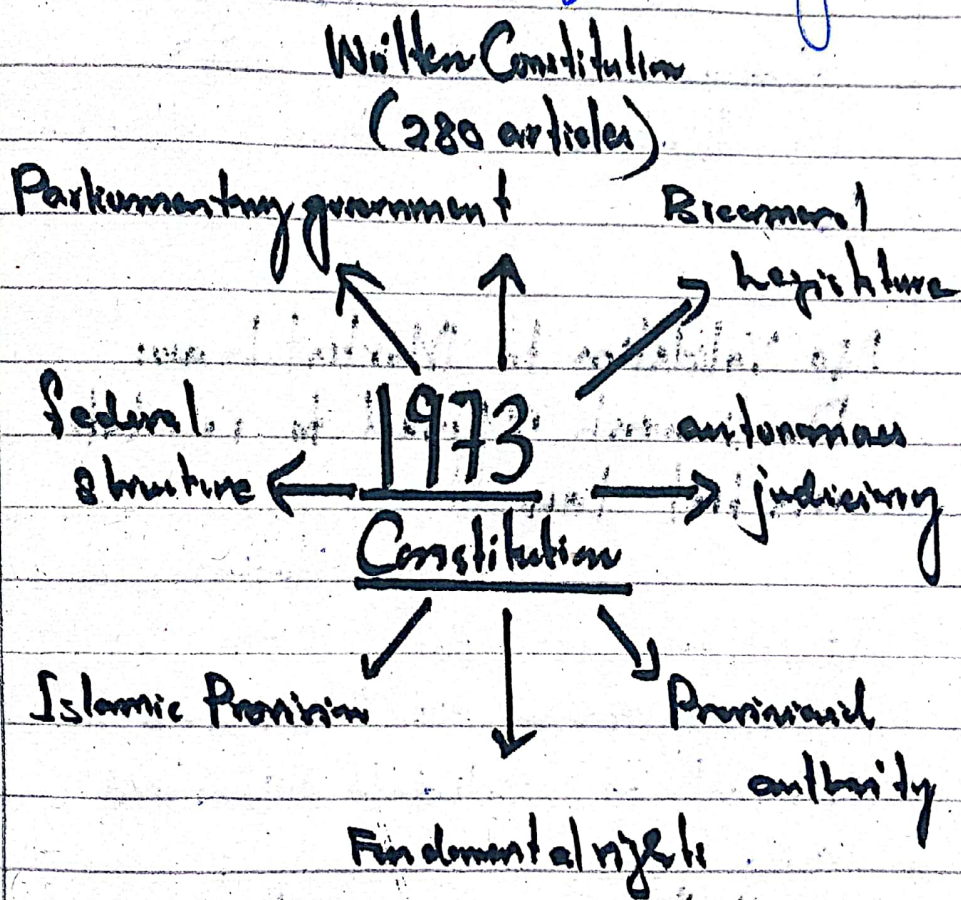 Written Constitution
(280 articles)
Parliamentary government
Bicameral
Legislature
federal
structure
1973
Constitution
autonomous
judiciary
Islamic Provision
Provincial
authority
Fundamental rights